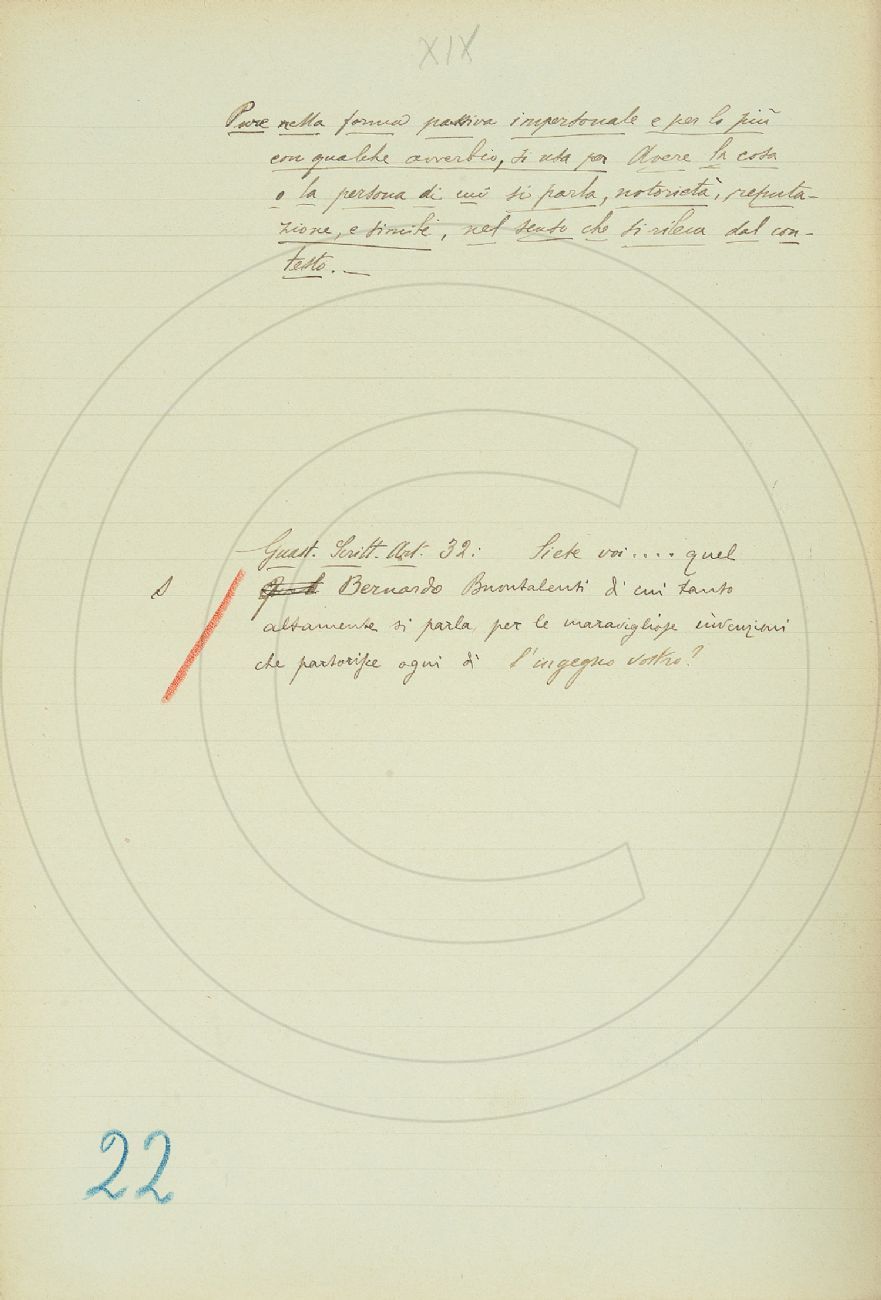 XIX
Pure nella forma passiva impersonale e per lo più
con qualche avverbio, si usa per Avere la cosa
o la persona di cui si parla, notorietà, reputa-
zione, e simili, nel senso che si rileva dal con-
testo. —
Guast. Scritt. Art. 32: Siete voi.... quel
S Bernardo Buontalenti di cui tanto
altamente si parla per le maravigliose invenzioni
che partorisce ogni dì l'ingegno vostro?
22